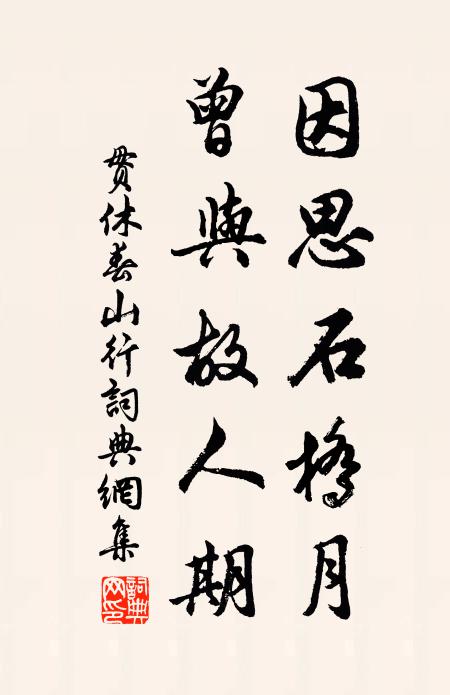 因思石橋月
曾與故人期
貫休春山行詞典網集
詞典網印